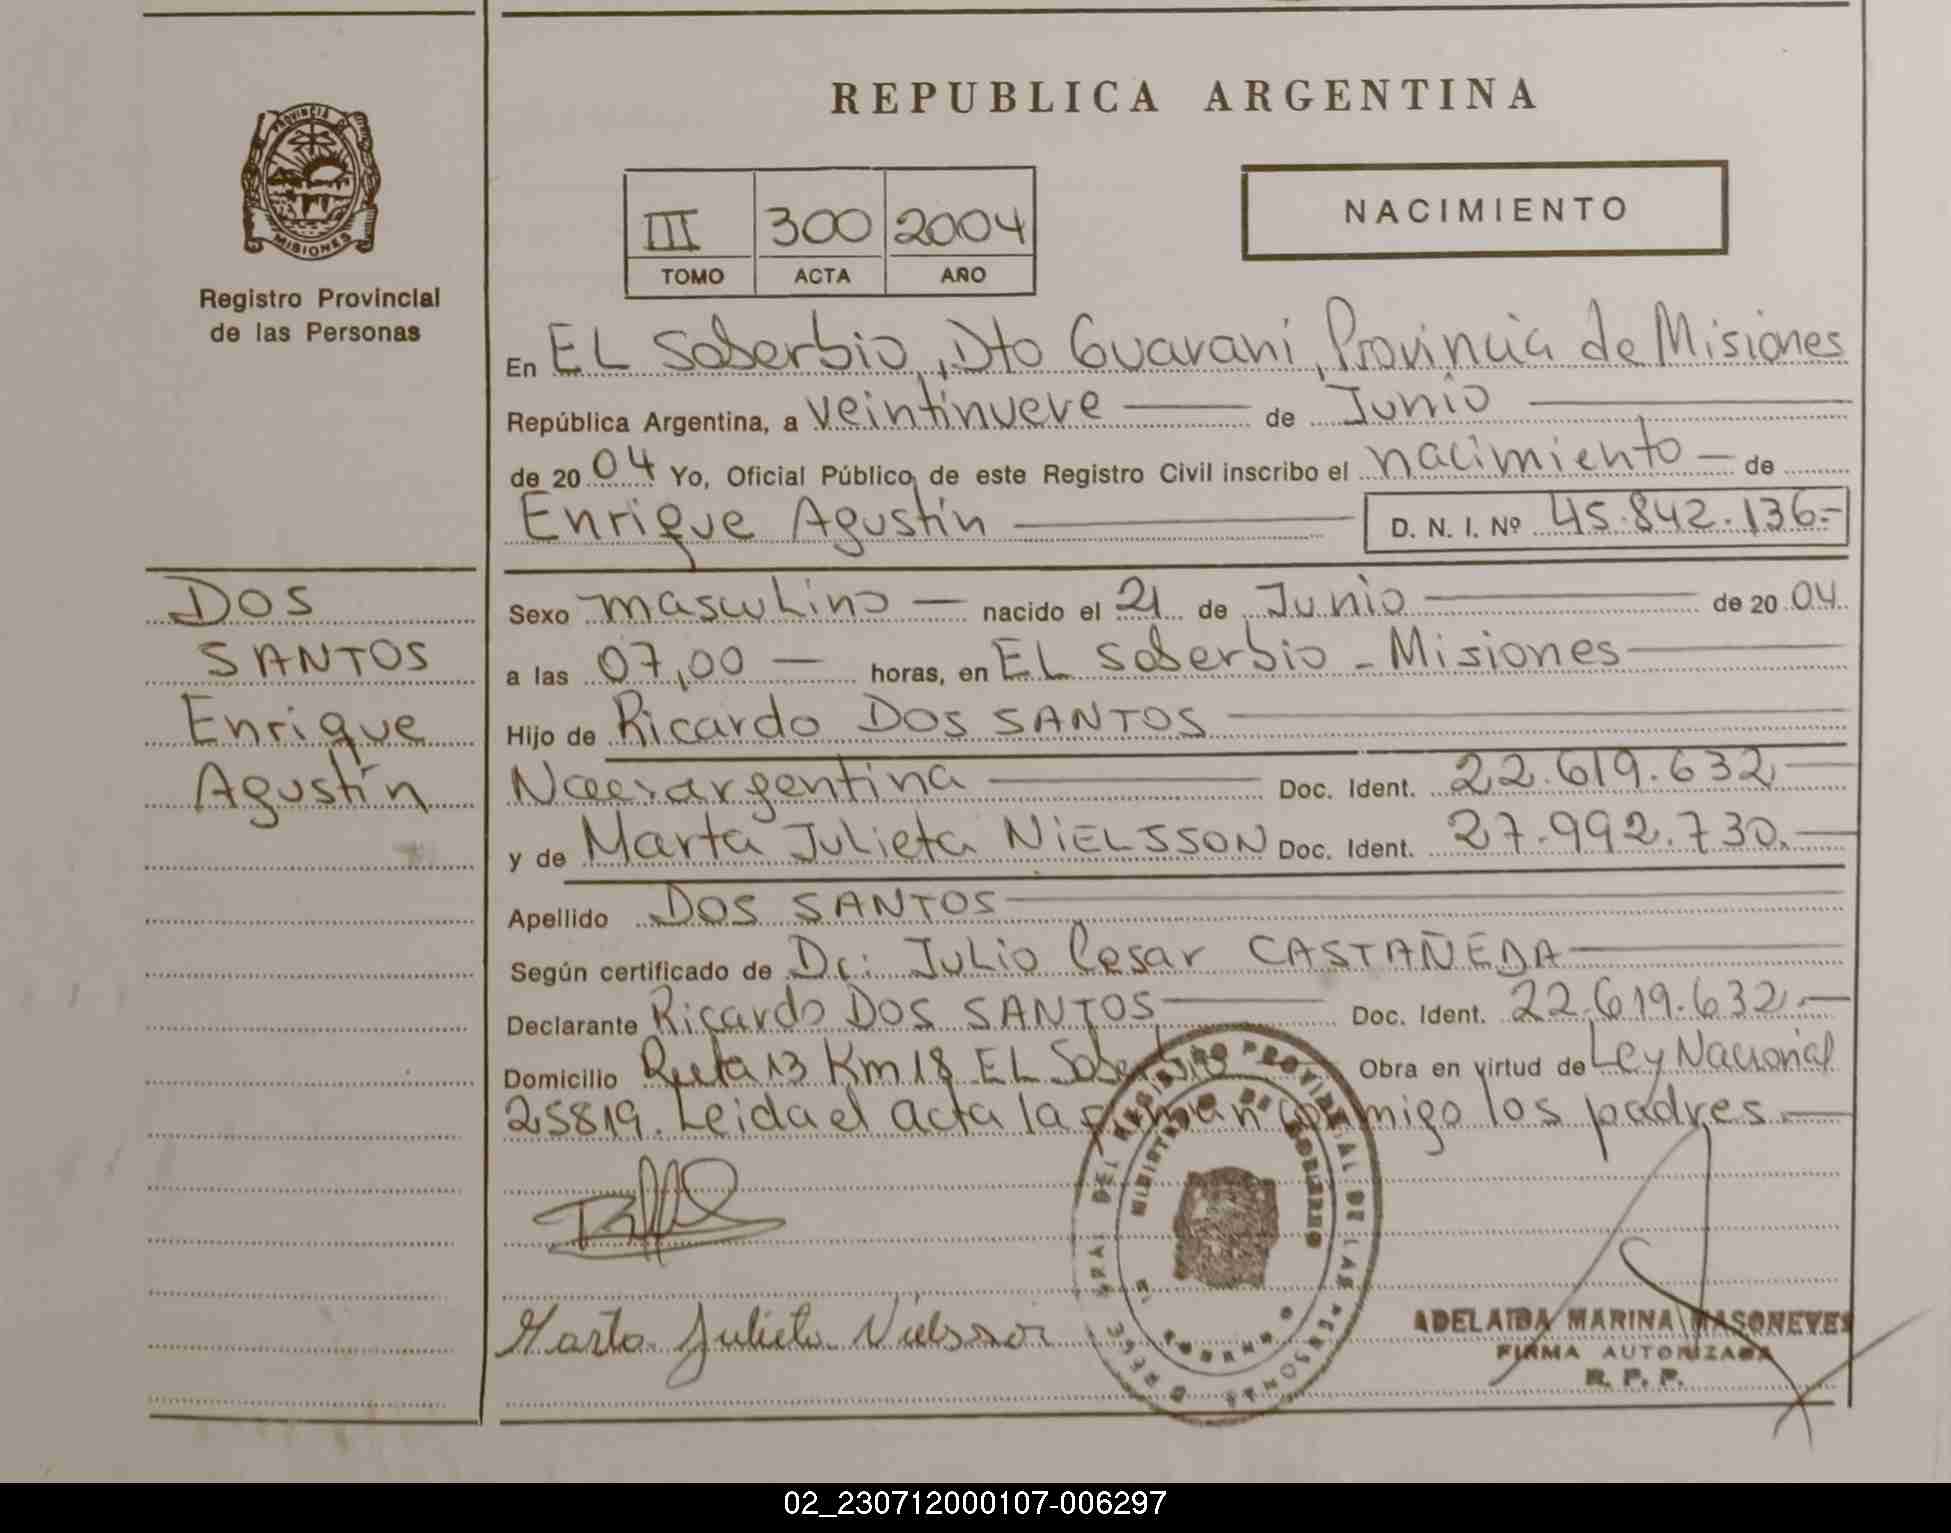 REPUBLICA ARGENTINA
PROVINCIA DE
MISIONES
Registro Provincial
de las Personas
III 300 2004
TOMO ACTA AÑO
NACIMIENTO
En EL Soberbio, Dto Guarani, Provincia de Misiones
República Argentina, a veintinueve de Junio
de 2004 Yo, Oficial Público de este Registro Civil inscribo el nacimiento de
Enrique Agustín D. N. I. Nº 45.842.136.-
DOS
SANTOS
Enrique
Agustín
Sexo masculino nacido el 21 de Junio de 2004
a las 07,00 horas, en EL Soberbio - Misiones
Hijo de Ricardo DOS SANTOS
Nac. argentina Doc. Ident. 22.619.632
y de Marta Julieta NIELSSON Doc. Ident. 27.992.730.
Apellido DOS SANTOS
Según certificado de Dr. Julio Cesar CASTAÑEDA
Declarante Ricardo DOS SANTOS Doc. Ident. 22.619.632.
Domicilio Ruta 13 Km 18 EL Soberbio Obra en virtud de Ley Nacional
25819. Leida el acta la firman conmigo los padres.
Marta Julieta Nielsson
REGISTRO PROVINCIAL DE LAS PERSONAS
MINISTERIO DE GOBIERNO
ADELAIDA MARINA MASONEVES
FIRMA AUTORIZADA
R. P. P.
02_230712000107-006297